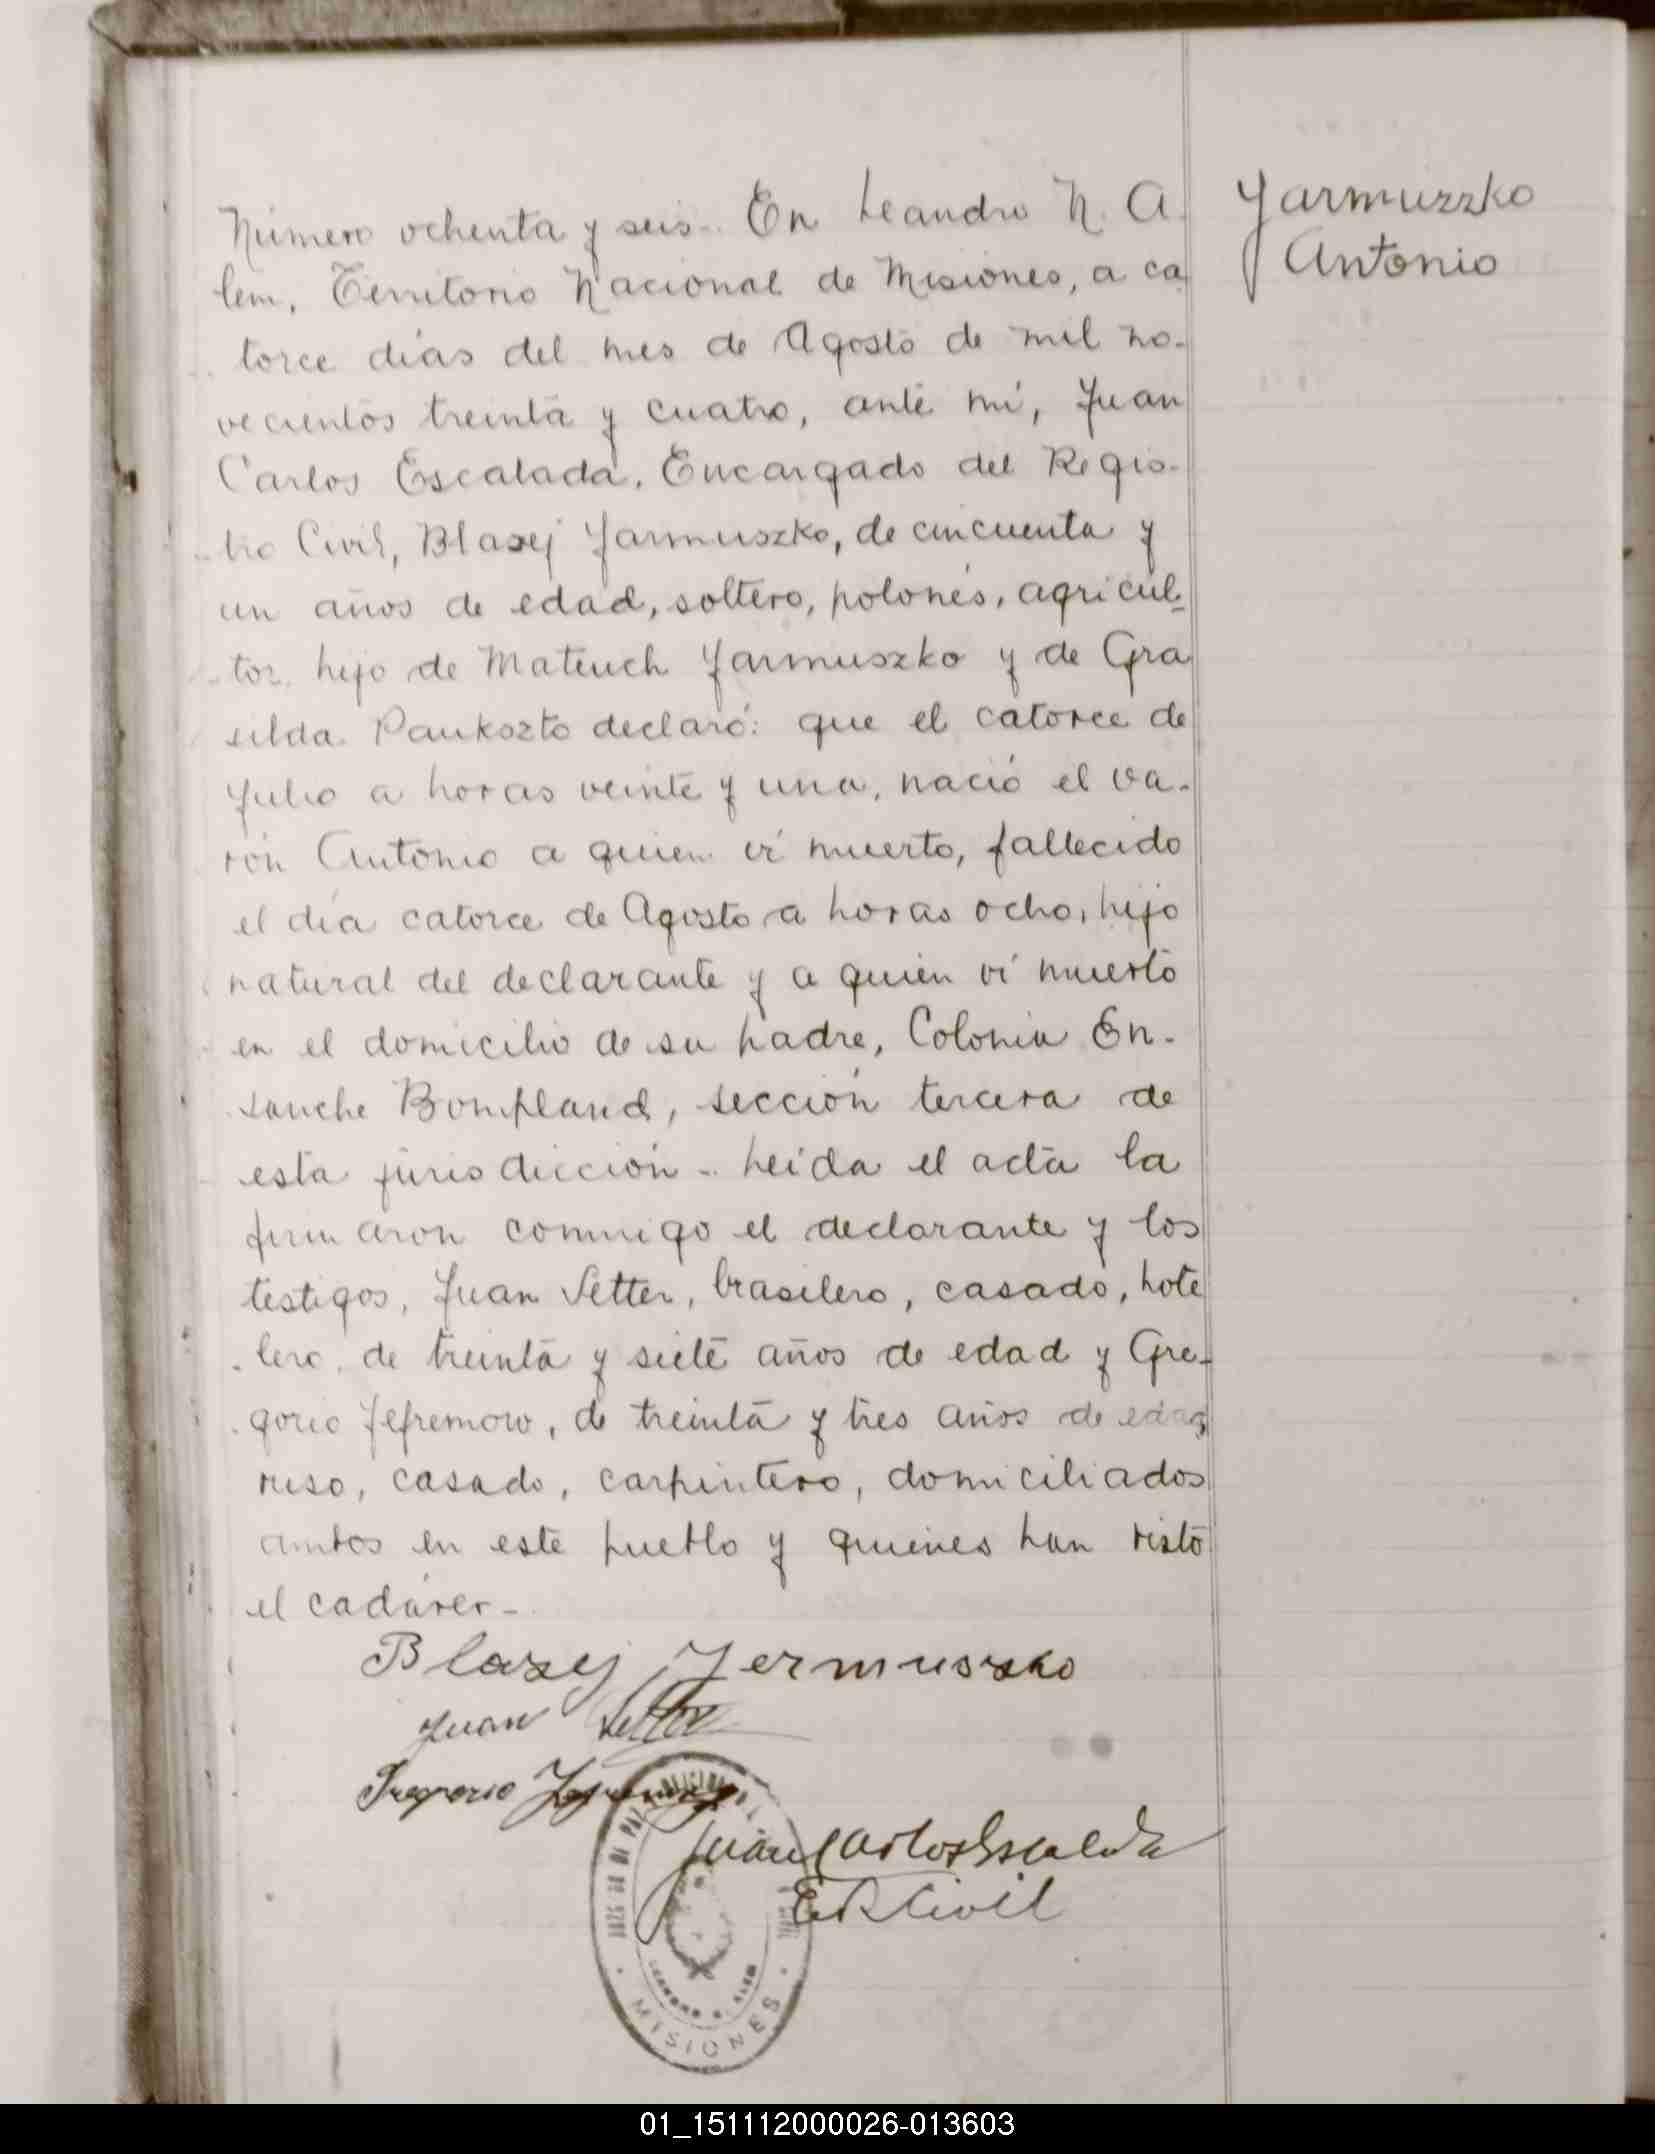 Yarmuszko
Antonio
Número ochenta y seis.. En Leandro N. A
lem, Territorio Nacional de Misiones, a ca
torce días del mes de Agosto de mil no-
vecientos treinta y cuatro, ante mí, Juan
Carlos Escalada, Encargado del Regis-
tro Civil, Blasej Yarmuszko, de cincuenta y
un años de edad, soltero, polonés, agricul-
tor, hijo de Mateuch Yarmuszko y de Gra
silda Paukszto declaró: que el catorce de
Julio a horas veinte y una, nació el va-
rón Antonio a quien vi muerto, fallecido
el día catorce de Agosto a horas ocho, hijo
natural del declarante y a quien vi muerto
en el domicilio de su padre, Colonia En-
sanche Bompland, sección tercera de
esta jurisdicción - Leída el acta la
firmaron conmigo el declarante y los
testigos, Juan Setter, brasilero, casado, hote
lero, de treinta y siete años de edad y Gre-
gorio Jefremow, de treinta y tres años de edad,
ruso, casado, carpintero, domiciliados
ambos en este pueblo y quienes han visto
el cadáver-
Blazej Jermuszko
Juan Setter
Gregorio Jefremow
Juan Carlos Escalada
E R Civil
JUZGADO DE PAZ
LEANDRO N. ALEM
MISIONES
01_151112000026-013603